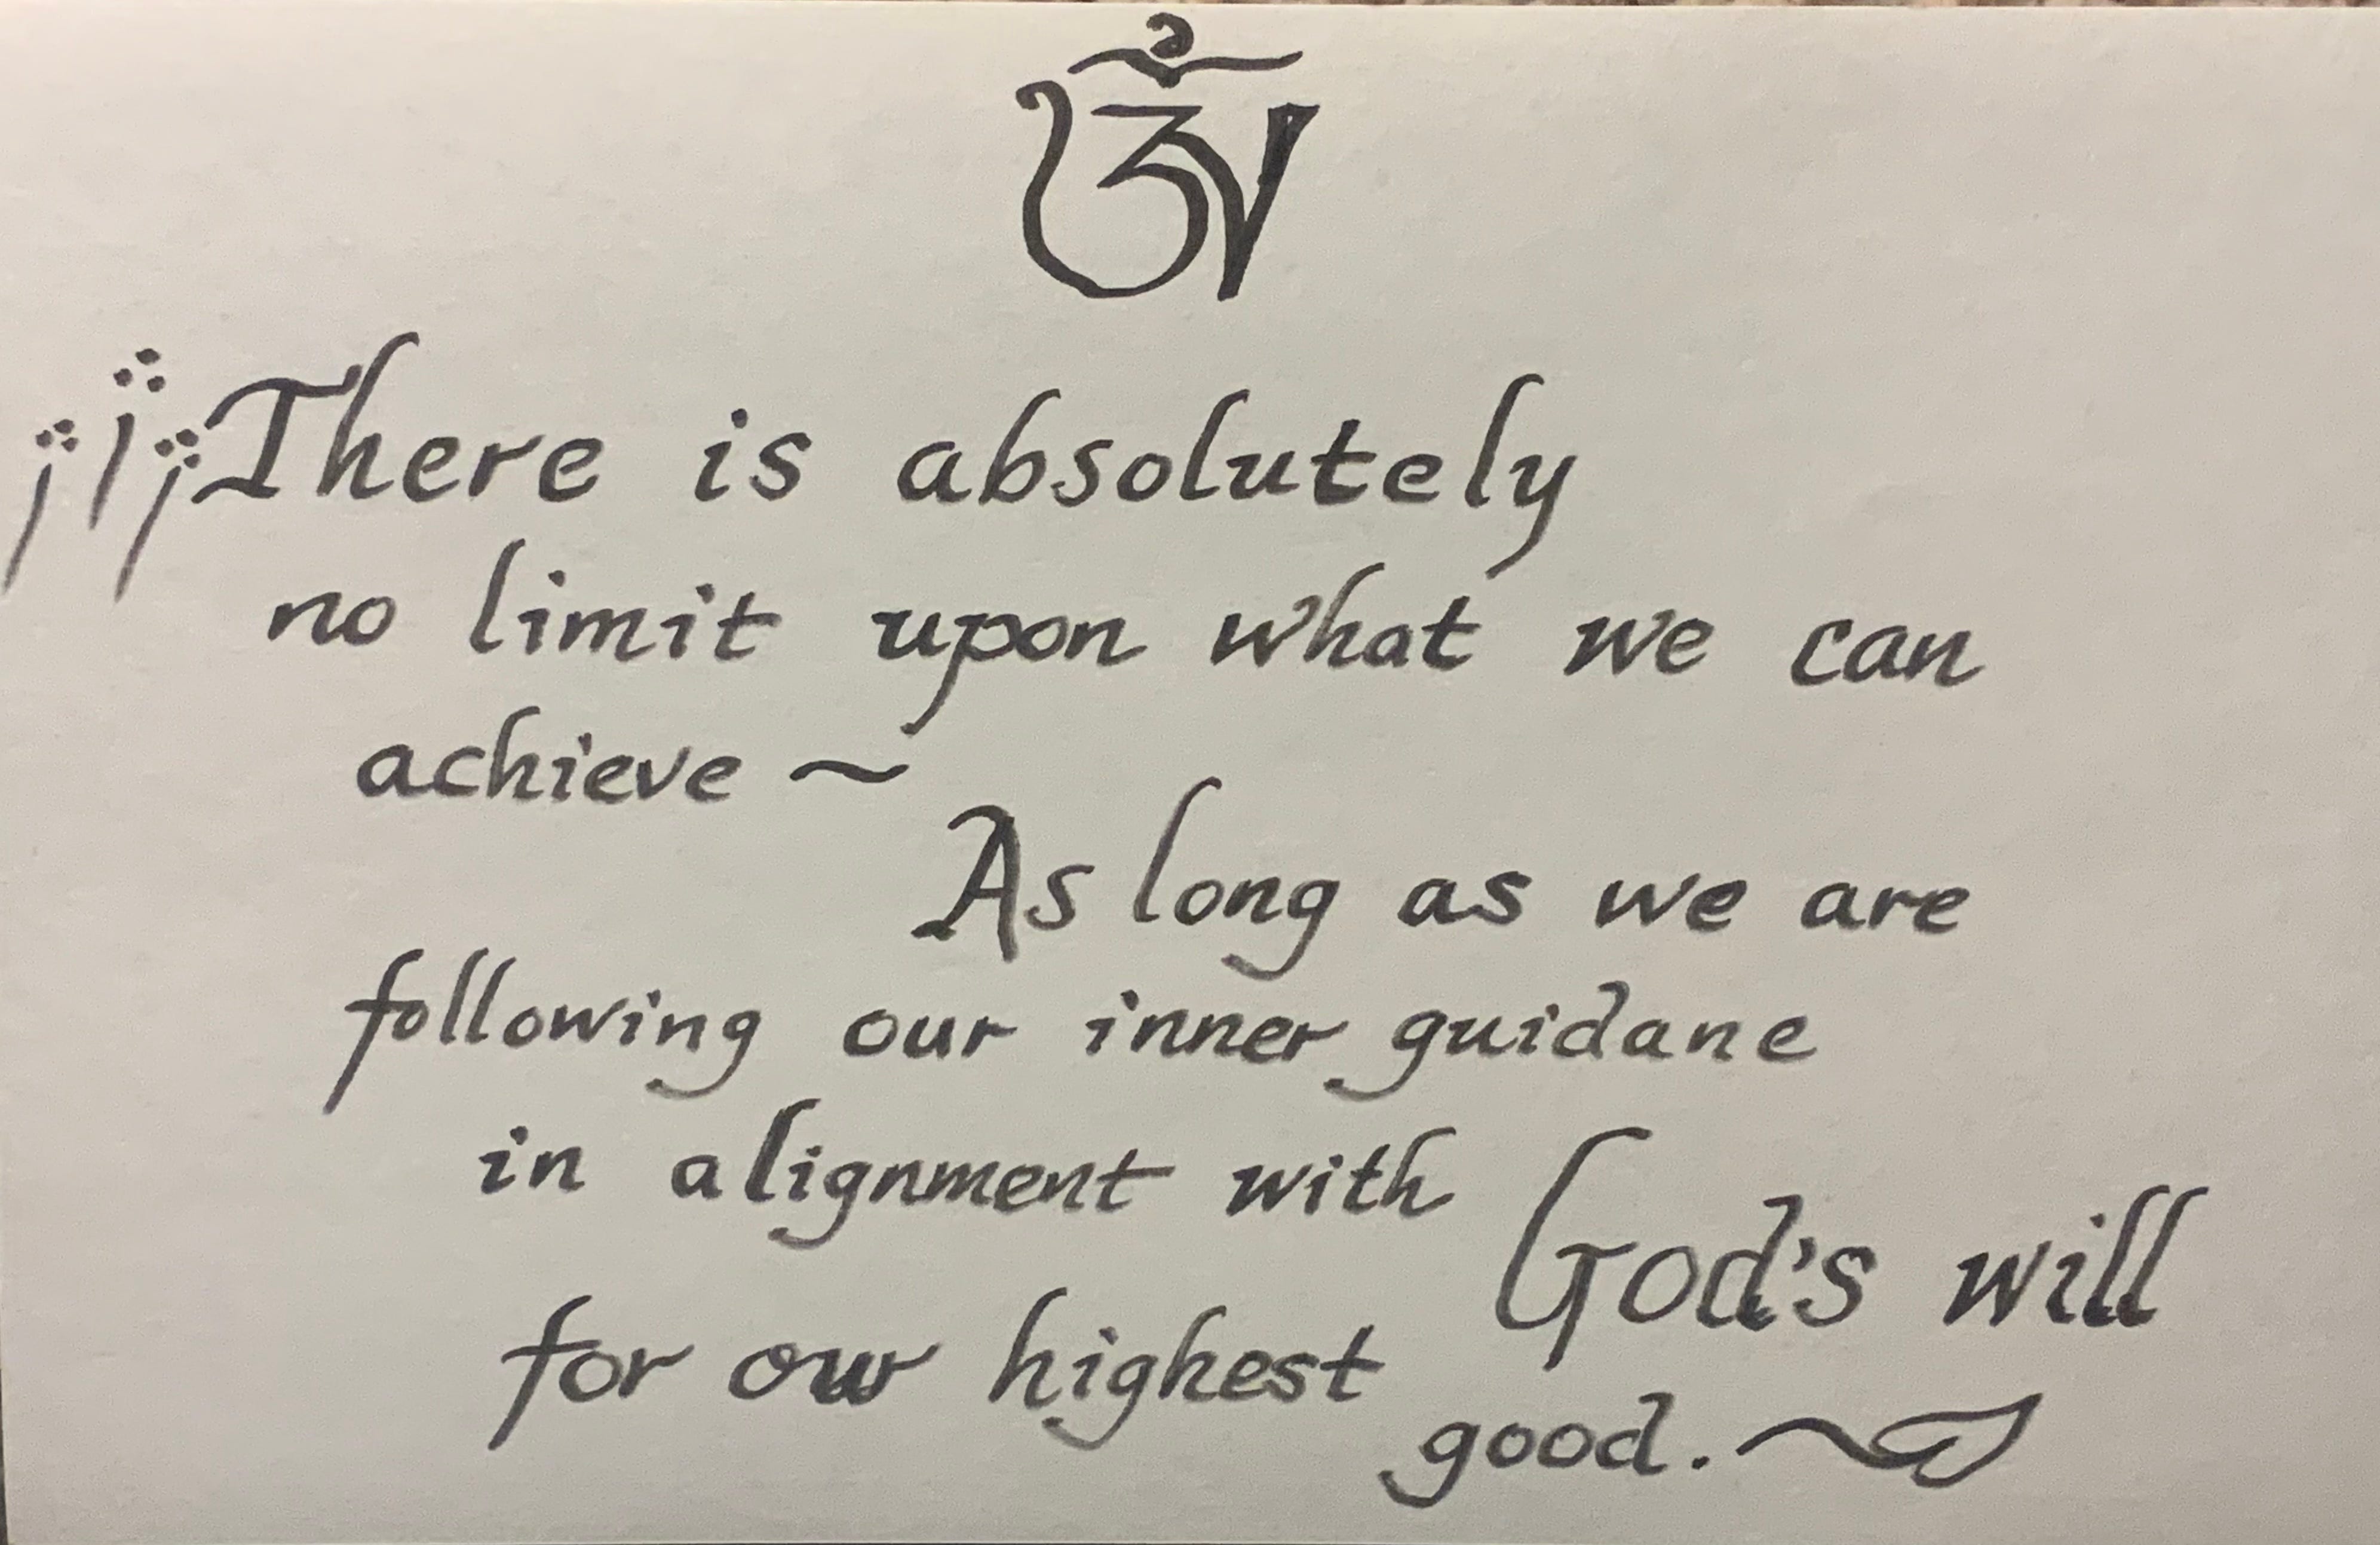 ॐ
There is absolutely
no limit upon what we can
achieve ~
As long as we are
following our inner guidane
in alignment with God's will
for our highest good.